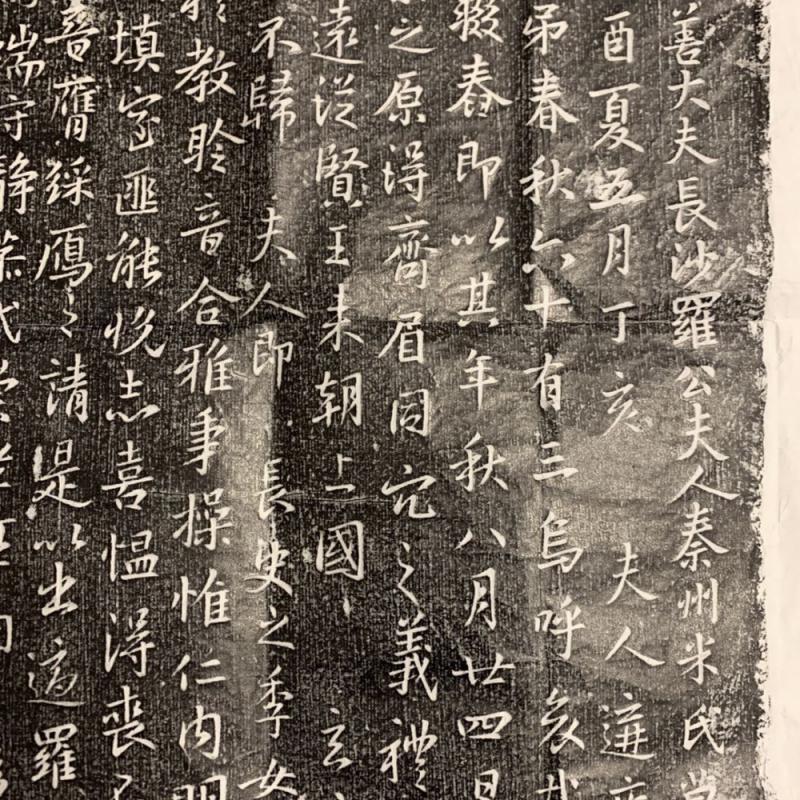 善大夫長沙羅公夫人秦州米氏
酉夏五月丁亥 夫人遘
弟春秋六十有三烏呼哀哉
叅即以其年秋八月廿四日
之原得齊眉同穴之義禮
遠從賢王來朝上國
不歸 夫人即 長史之季女
教聆音合雅事操惟仁內明
填室匪能悅志喜愠得喪
膺綵鴈之請是以出適羅
端守靜